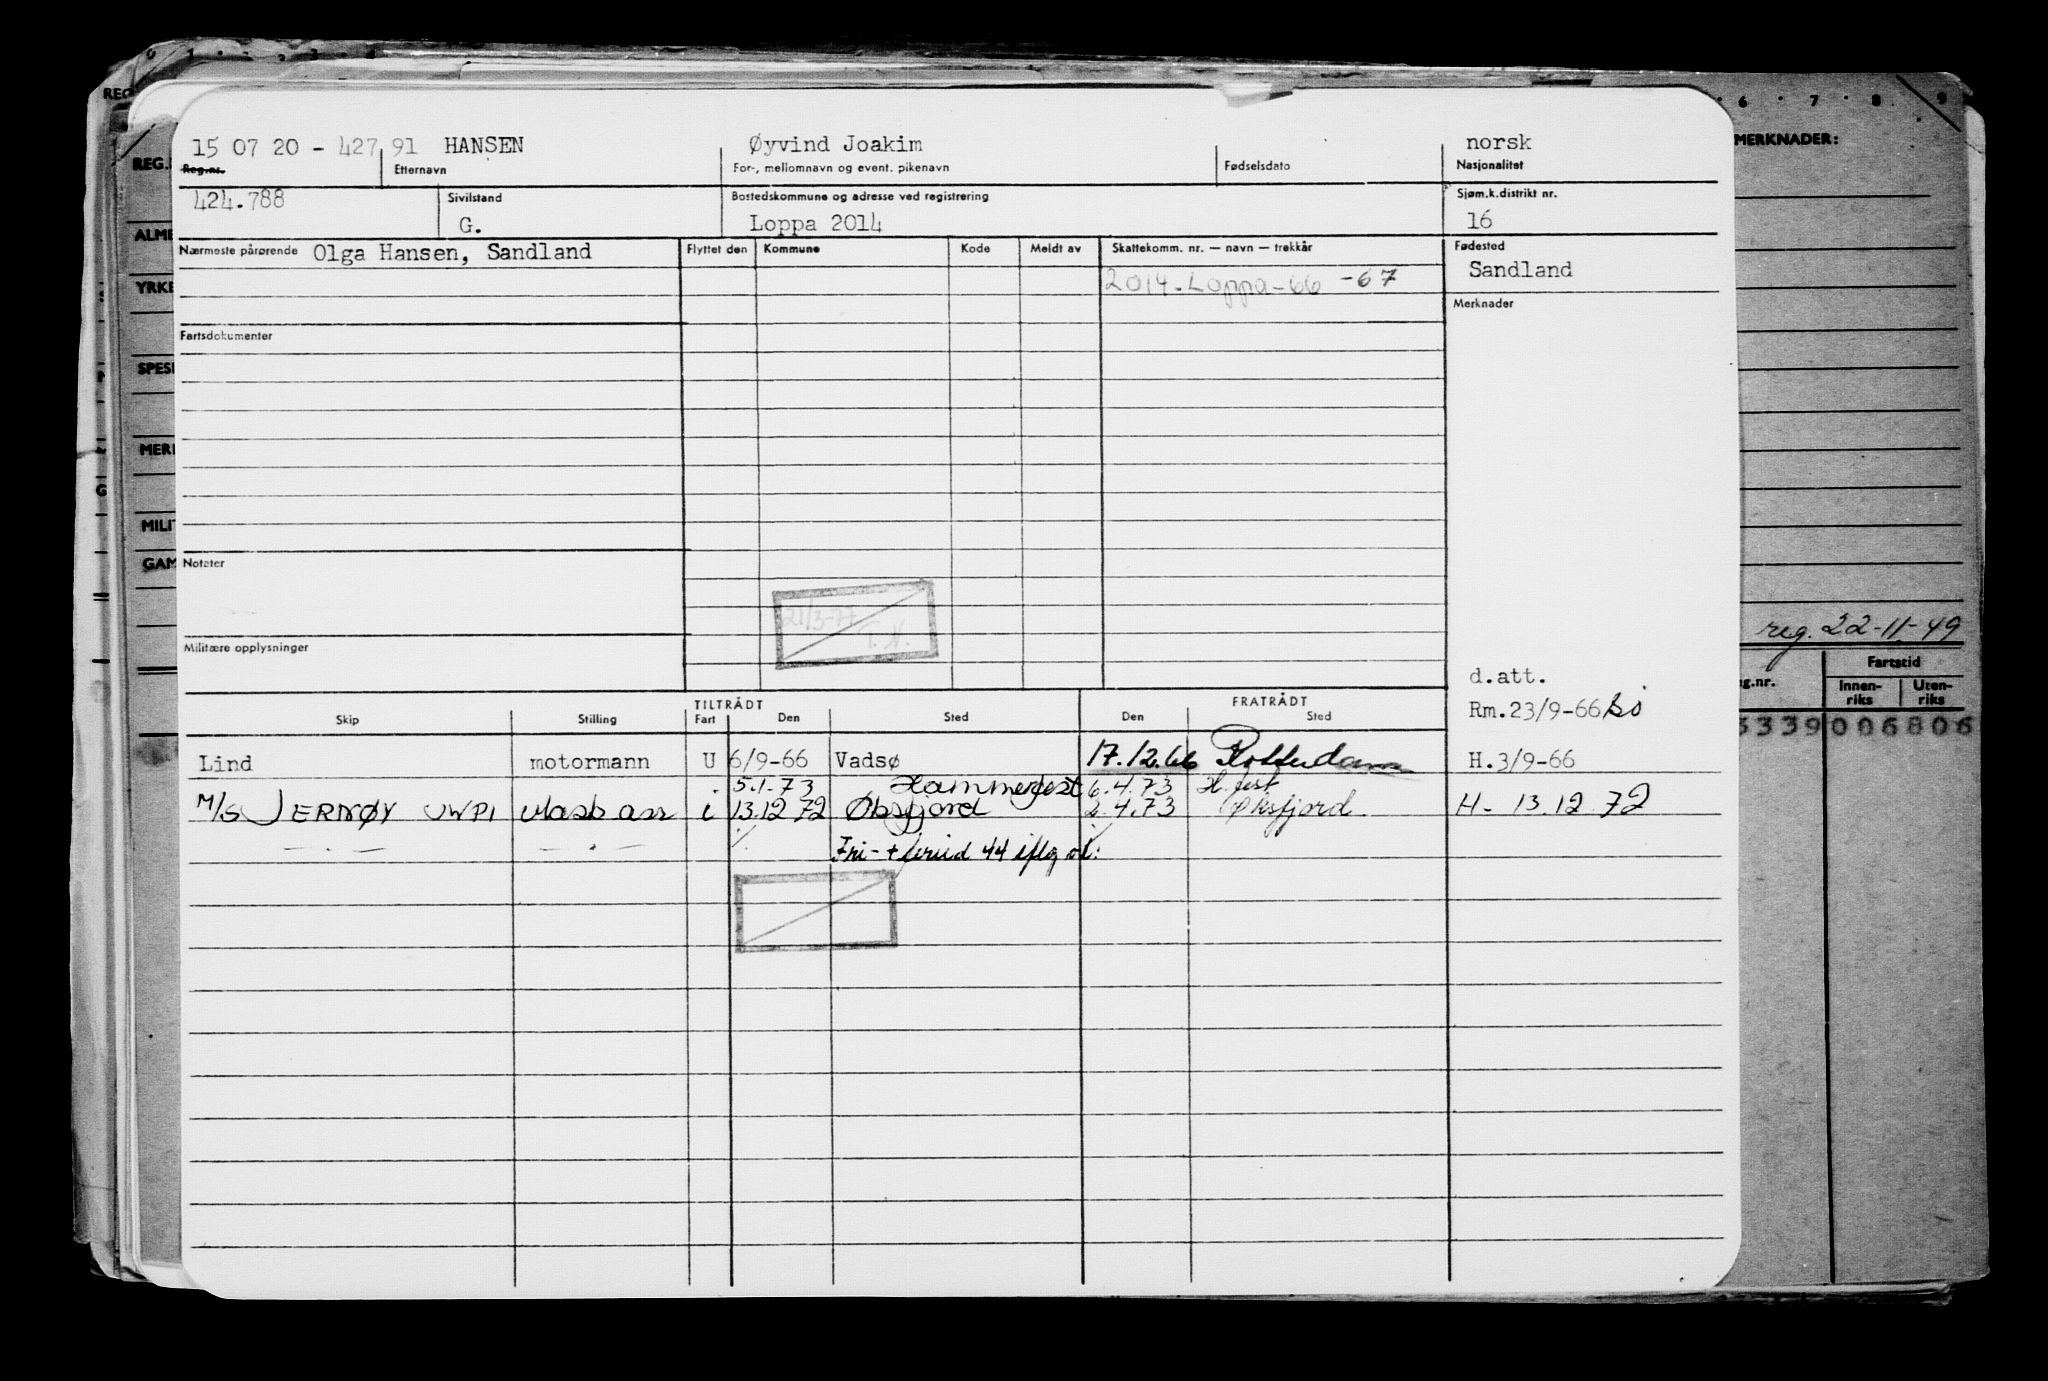 15 07 20 - 427 91 HANSEN Øyvind Joakim norsk
Reg.nr. Etternavn For-, mellomnavn og event. pikenavn Fødselsdato Nasjonalitet
424.788 Sivilstand Bostedskommune og adresse ved registrering Sjøm.k.distrikt nr.
G. Loppa 2014 16
Nærmeste pårørende Olga Hansen, Sandland Flyttet den Kommune Kode Meldt av Skattekomm. nr. — navn — trekkår Fødested
2014-Loppa-66 -67 Sandland
Merknader
Fartsdokumenter
Notater
21/3-77
T.N.
Militære opplysninger
d.att.
TILTRÅDT FRATRÅDT
Skip Stilling Fart Den Sted Den Sted
Rm.23/9-66
Lind motormann U 6/9-66 Vadsø 17.12.66 Rotterdam H.3/9-66
5.1.73 Hammerfest 6.4.73 H.fest
M/S JERNØY i 13.12 72 Øksfjord 2.4.73 Øksfjord H- 13.12.72
— . — — . —
Fri- + 44
REG
REG.
ALME
YRKE
SPESI
MER
G
MILI
GAM
6 7 8 9
MERKNADER:
reg. 22-11-49
Fartstid
g.nr. Innen-riks Uten-riks
3339 006806